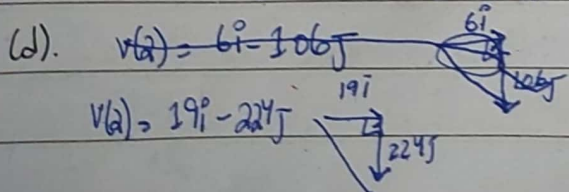 (d). v(2) = 6i - 106j 6i 106j
v(2) = 19i - 224j 19i 224j